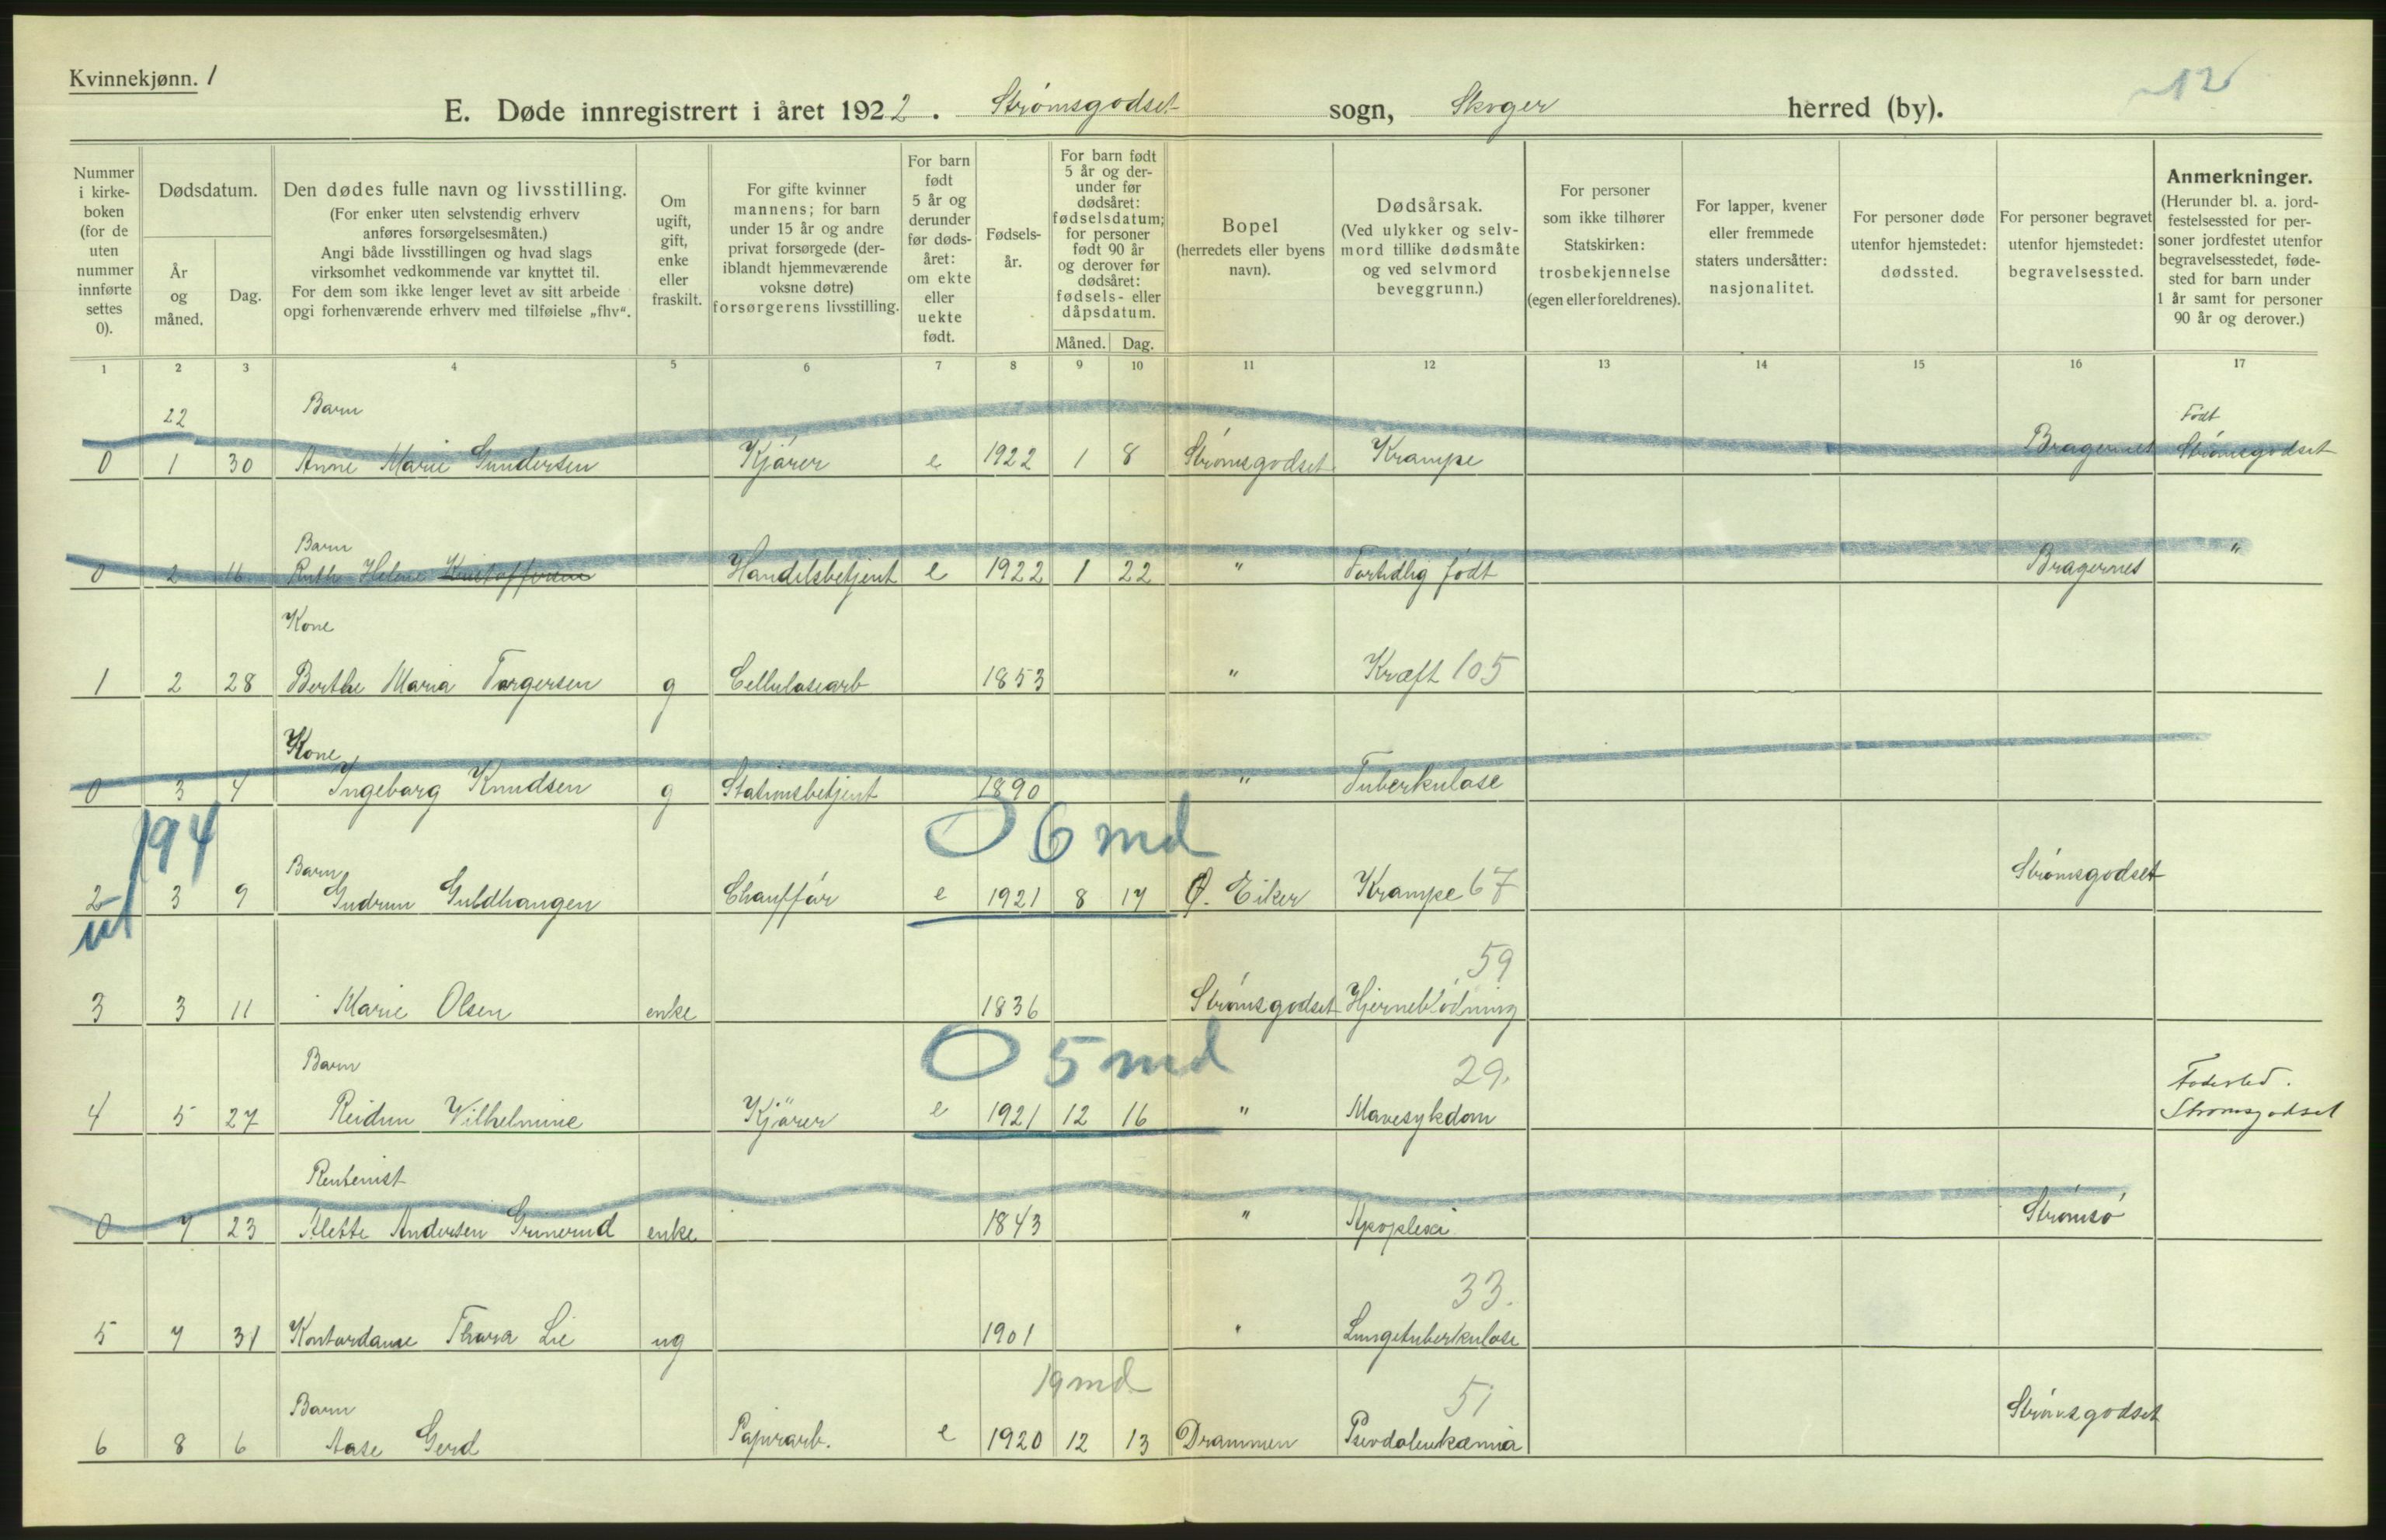 Kvinnekjønn. 1
12
E. Døde innregistrert i året 1922. Strømsgodset sogn, Skoger herred (by).
Nummer i kirke-boken (for de uten nummer innførte settes 0).
Dødsdatum.
År og måned.
Dag.
Den dødes fulle navn og livsstilling.
(For enker uten selvstendig erhverv anføres forsørgelsesmåten.)
Angi både livsstillingen og hvad slags virksomhet vedkommende var knyttet til.
For dem som ikke lenger levet av sitt arbeide opgi forhenværende erhverv med tilføielse „fhv“.
Om ugift, gift, enke eller fraskilt.
For gifte kvinner mannens; for barn under 15 år og andre privat forsørgede (der-iblandt hjemmeværende voksne døtre) forsørgerens livsstilling.
For barn født 5 år og derunder før døds-året: om ekte eller uekte født.
Fødsels-år.
For barn født 5 år og der-under før dødsåret: fødselsdatum; for personer født 90 år og derover før dødsåret: fødsels- eller dåpsdatum.
Måned. Dag.
Bopel (herredets eller byens navn).
Dødsårsak.
(Ved ulykker og selv-mord tillike dødsmåte og ved selvmord beveggrunn.)
For personer som ikke tilhører Statskirken: trosbekjennelse (egen eller foreldrenes).
For lapper, kvener eller fremmede staters undersåtter: nasjonalitet.
For personer døde utenfor hjemstedet: dødssted.
For personer begravet utenfor hjemstedet: begravelsessted.
Anmerkninger.
(Herunder bl. a. jord-festelsessted for per-soner jordfestet utenfor begravelsesstedet, føde-sted for barn under 1 år samt for personer 90 år og derover.)
1 2 3 4 5 6 7 8 9 10 11 12 13 14 15 16 17
22 Barn Født
0 1 30 Anne Marie Gundersen Kjører e 1922 1 8 Strømsgodset Krampe Bragernes Strømsgodset
Barn
0 2 16 Ruth Helene Kristoffersen Handelsbetjent e 1922 1 22 " Fortidlig født Bragernes "
Kone
1 2 28 Berthe Maria Torgersen g Cellulosearb 1853 " Kræft 105
Kone
0 3 4 Ingeborg Knudsen g Stationsbetjent 1890 " Tuberkulose
194 O 6 md
Barn
2 3 9 Gudrun Guldhaugen Chauffør e 1921 8 17 Ø. Eiker Krampe 67 Strømsgodset
ut
59
3 3 11 Marie Olsen enke 1836 Strømsgodset Hjerneblødning
O 5 md
Barn 29. Fødested.
4 5 27 Reidun Wilhelmine Kjører e 1921 12 16 " Mavesykdom Strømsgodset
Rentenist
0 7 23 Alette Andersen Grinerud enke 1843 " Apopleksi Strømsø
33.
5 7 31 Kontordame Thora Lie ug 1901 " Lungetuberkulose
19 md 51
Barn
6 8 6 Aase Gerd Papirarb. e 1920 12 13 Drammen Psevdoleukæmia Strømsgodset